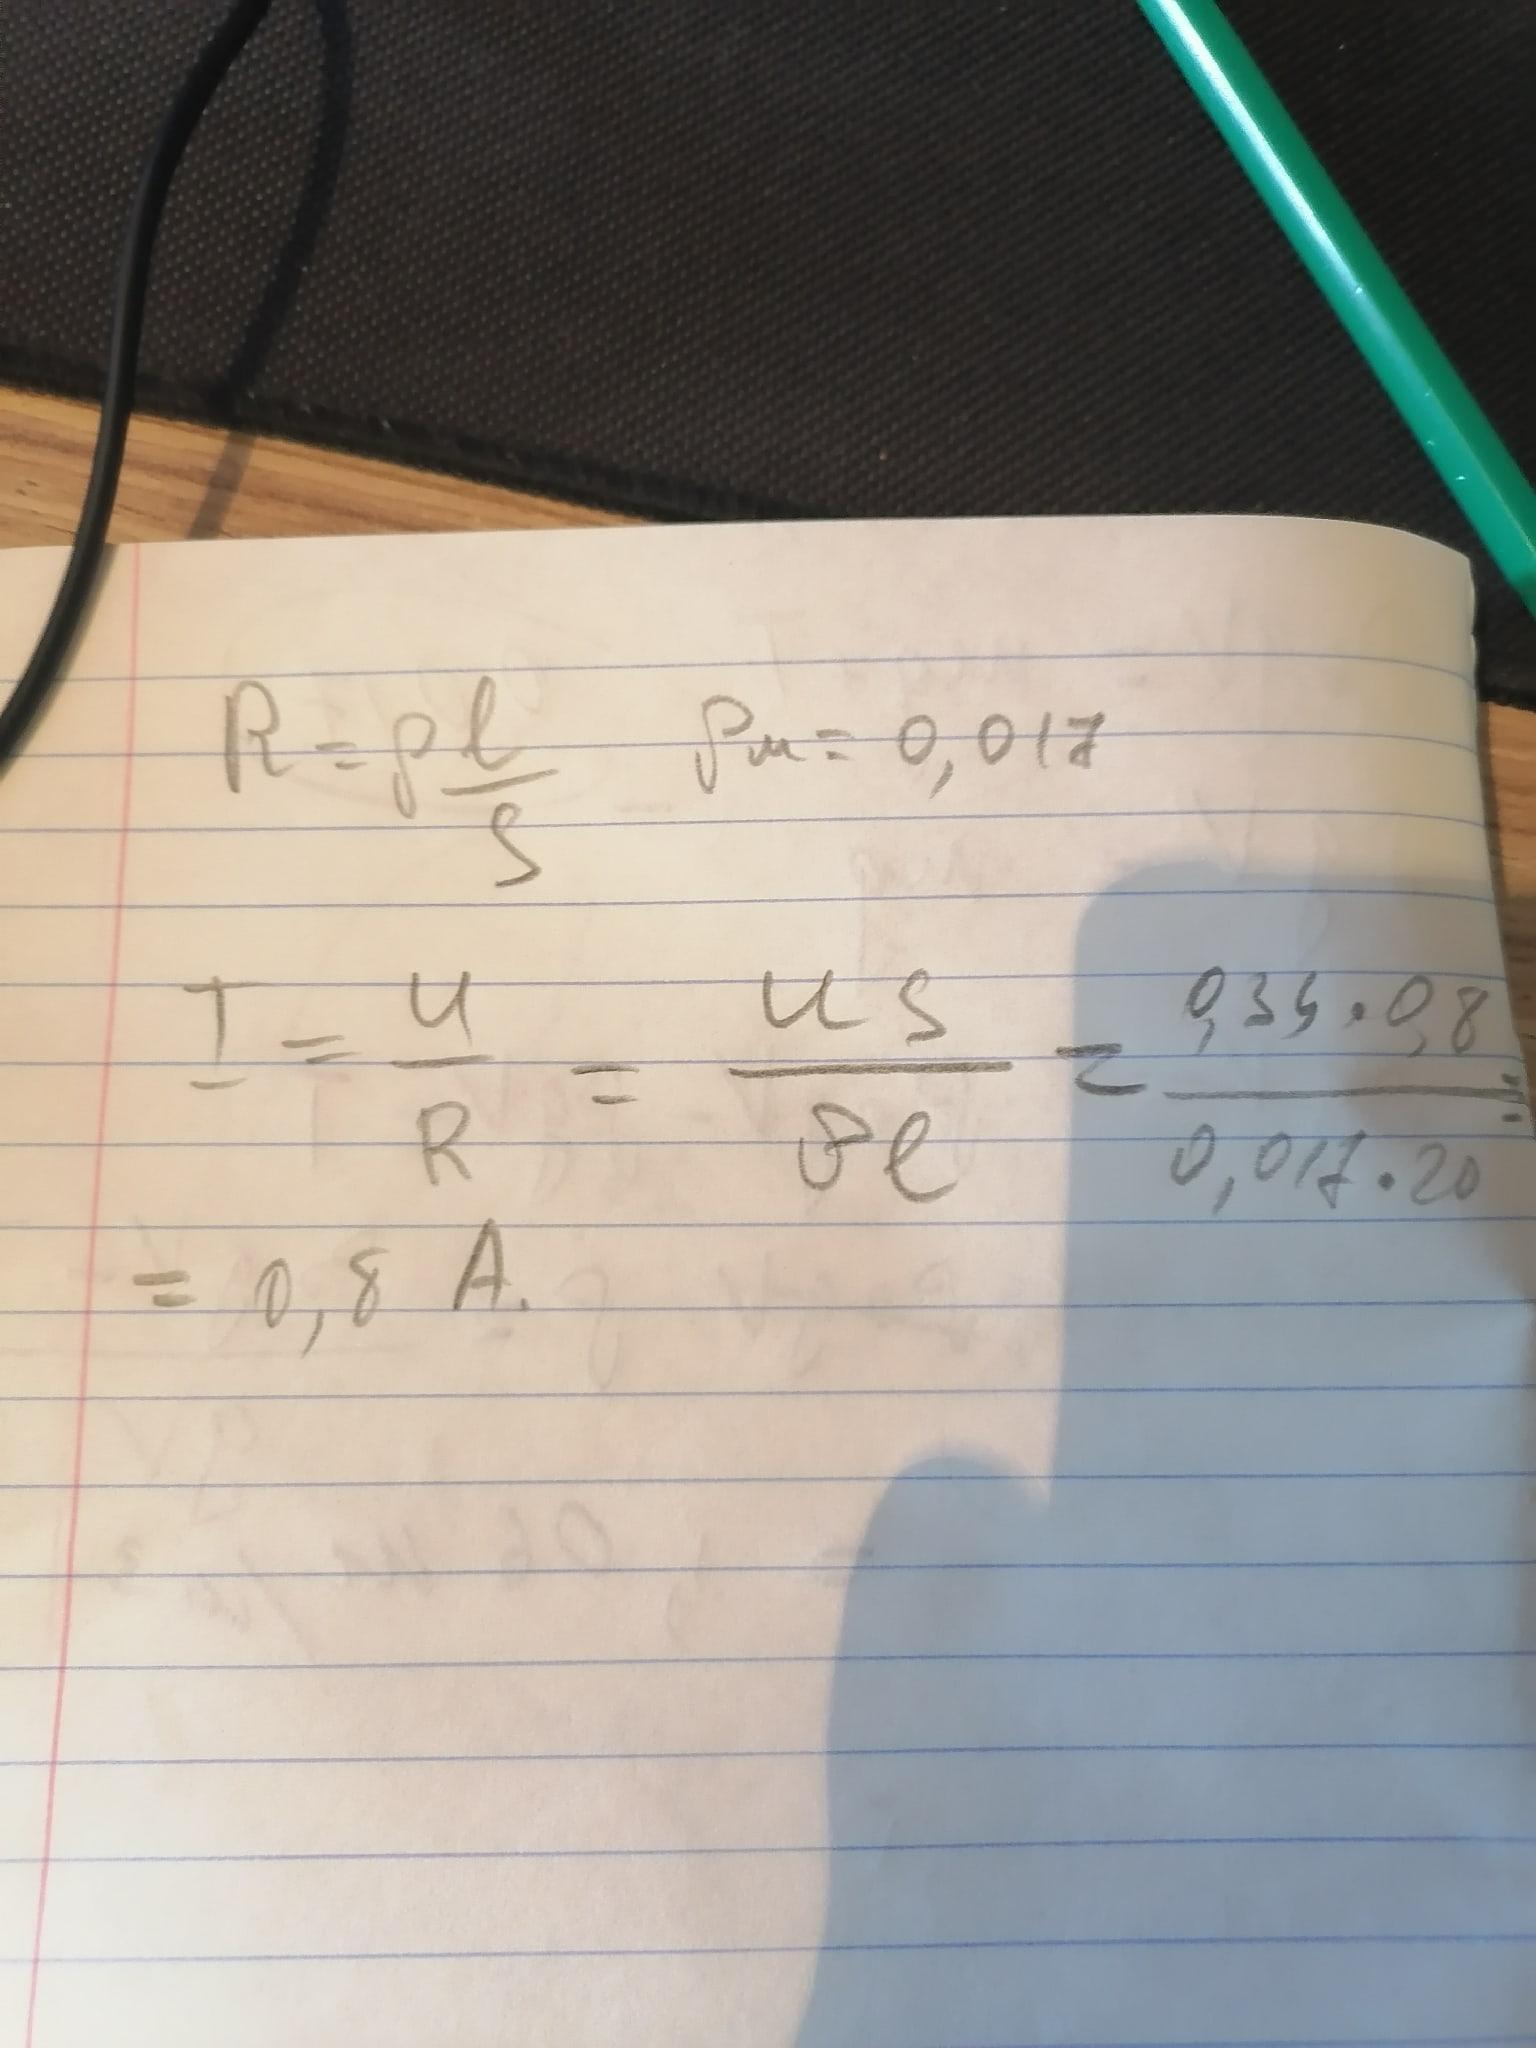 R = ρ l/S ρм = 0,017
I = U/R = US/ρl = 0,34·0,8/0,017·20 =
= 0,8 А.